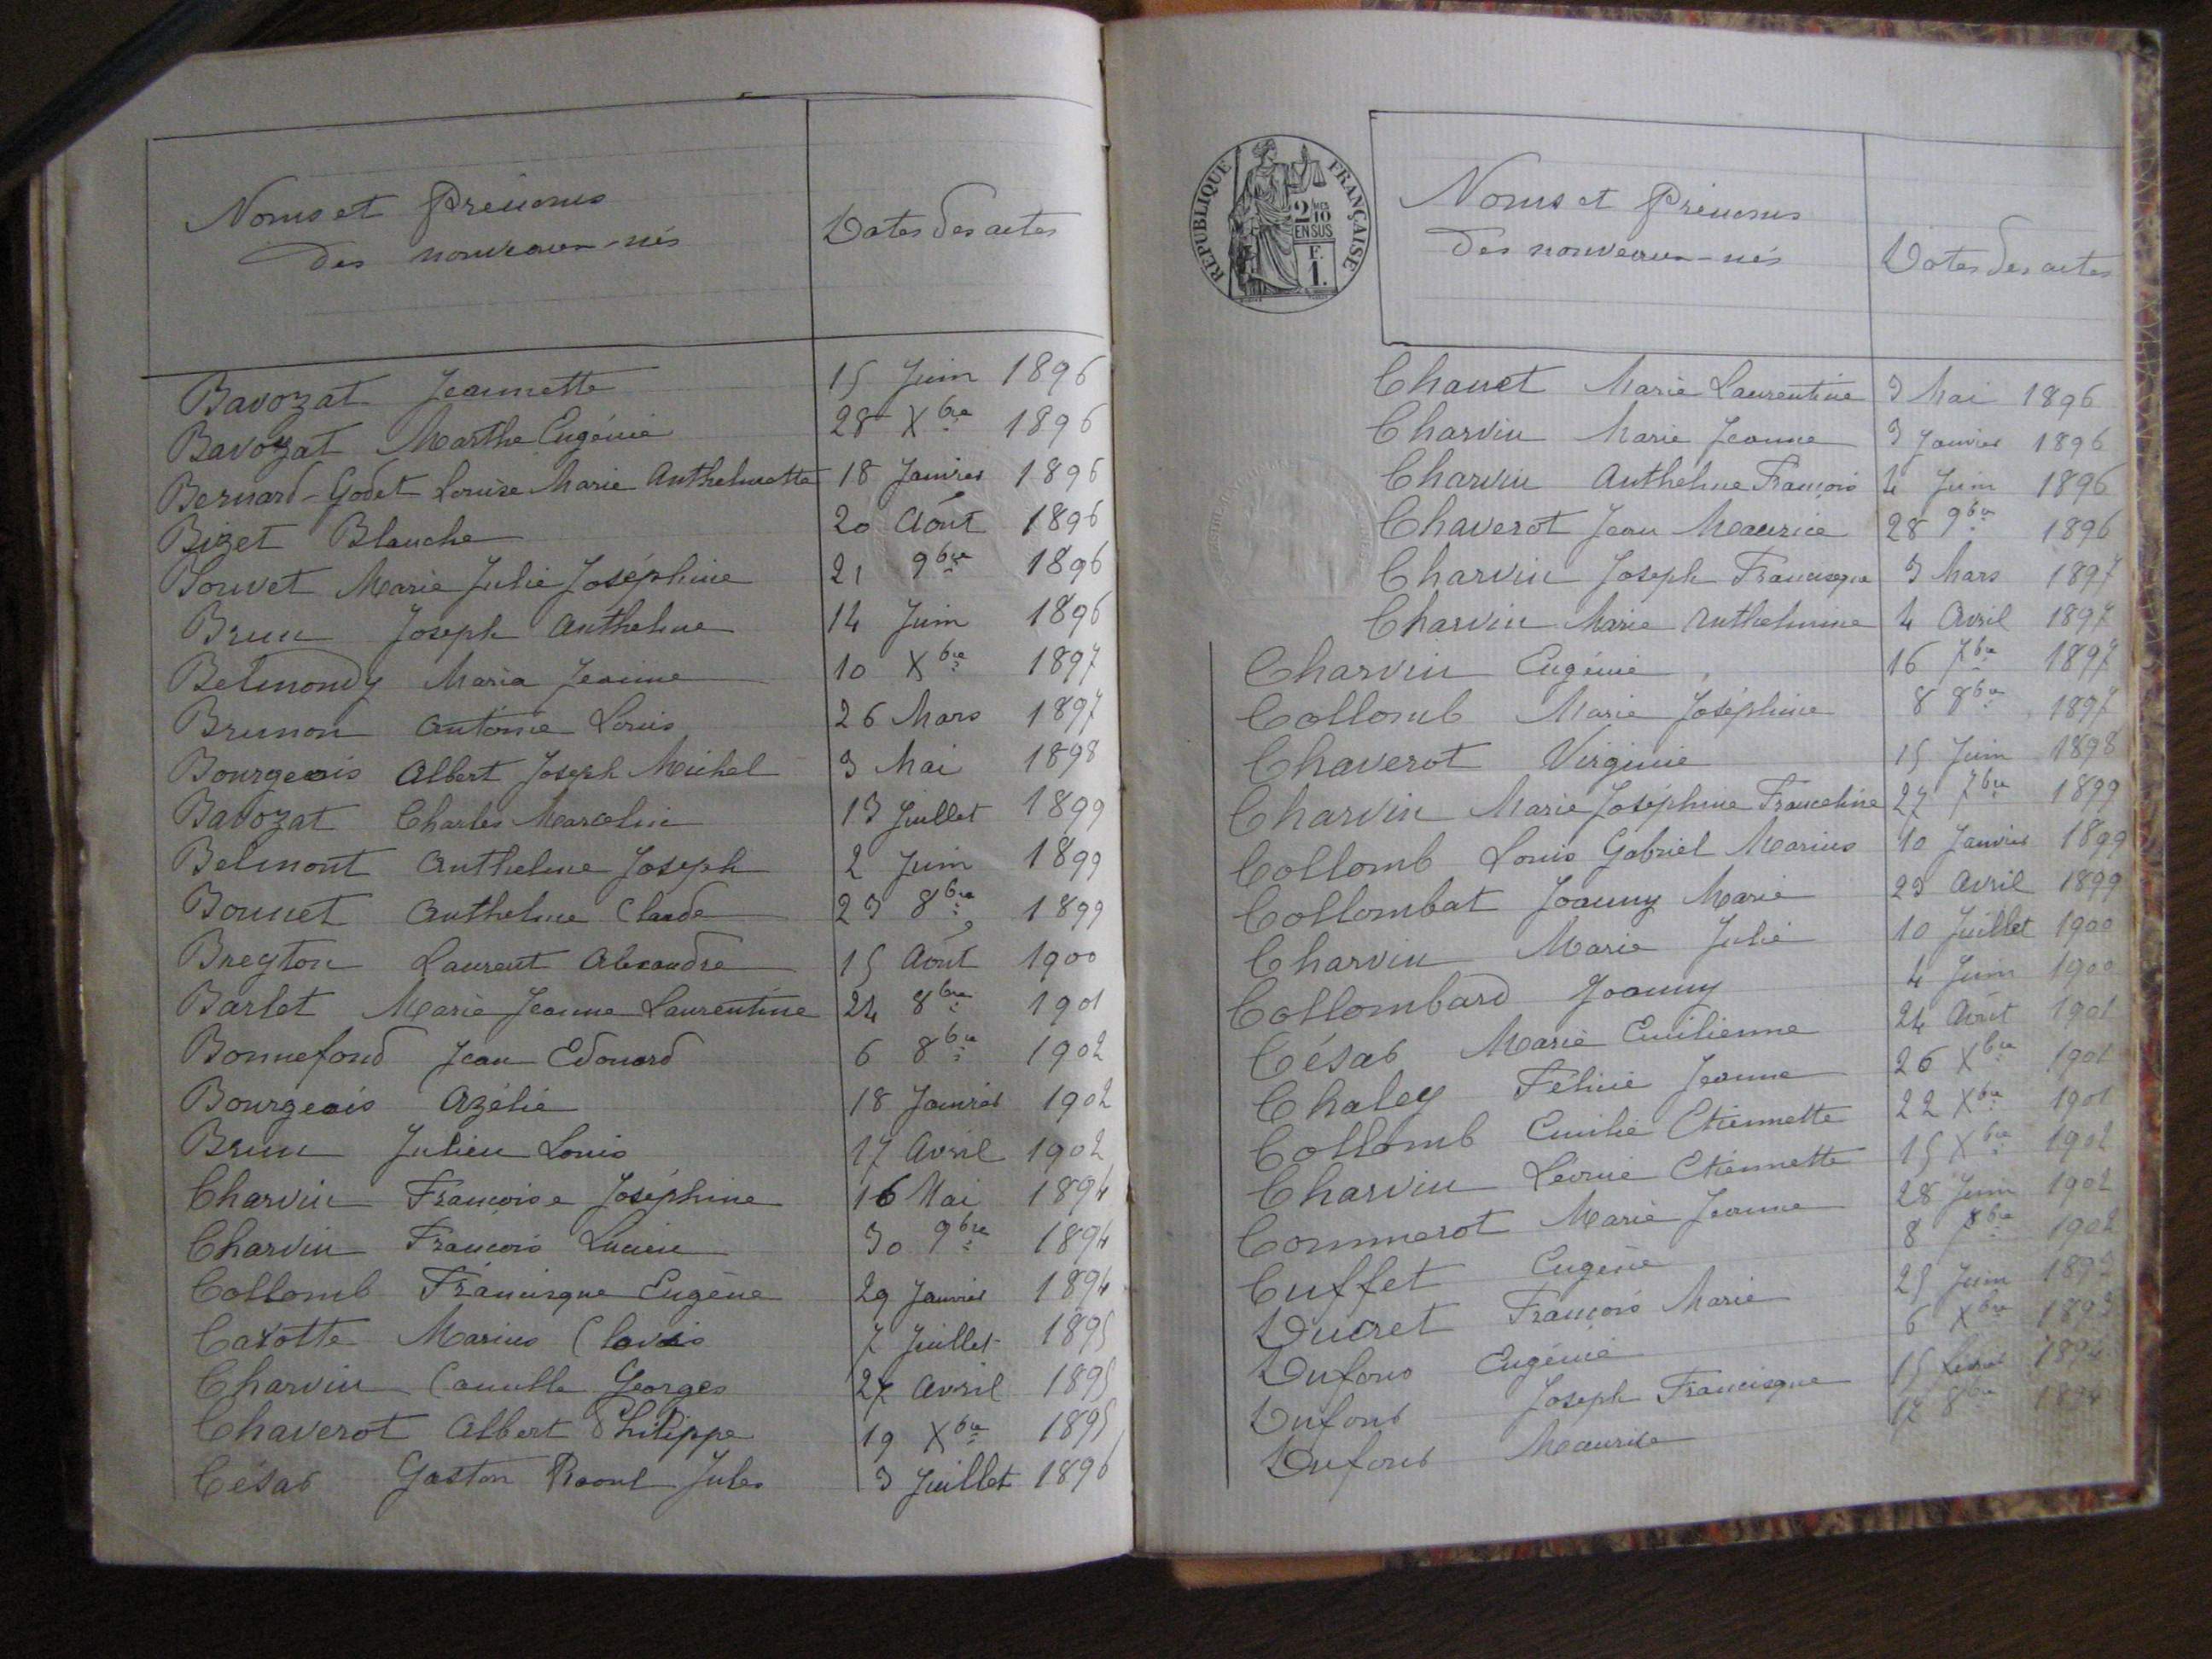 Noms et Prénoms
des nouveaux-nés
Dates des actes
Bavozat Jeannette 15 Juin 1896
Bavozat Marthe Eugénie 28 Xbre 1896
Bernard-Godet Louise Marie Anthelmette 18 Janvier 1896
Bizet Blanche 20 Août 1896
Bouvet Marie Julie Joséphine 21 9bre 1896
Brun Joseph Anthelme 14 Juin 1896
Belmondy Maria Jeanne 10 Xbre 1897
Brunon Antoine Louis 26 Mars 1897
Bourgeois Albert Joseph Michel 3 Mai 1898
Bavozat Charles Marcelin 13 Juillet 1899
Belmont Anthelme Joseph 2 Juin 1899
Bonnet Anthelme Claude 23 8bre 1899
Breyton Laurent Alexandre 15 Août 1900
Barlet Marie Jeanne Laurentine 24 8bre 1901
Bonnefond Jean Edouard 6 8bre 1902
Bourgeois Azélie 18 Janvier 1902
Brun Julien Louis 17 Avril 1902
Charvin Françoise Joséphine 16 Mai 1894
Charvin François Lucien 30 9bre 1894
Collomb Francisque Eugène 29 Janvier 1894
Cazotte Marius Clovis 7 Juillet 1895
Charvin Camille Georges 27 Avril 1895
Chaverot Albert Philippe 19 Xbre 1895
César Gaston Raoul Jules 3 Juillet 1896
REPUBLIQUE FRANÇAISE
2/10
MES
EN SUS
F.
1.
Noms et Prénoms
des nouveaux-nés
Dates des actes
Chauet Marie Laurentine 3 Mai 1896
Charvin Marie Jeanne 3 Janvier 1896
Charvin Anthelme François 4 Juin 1896
Chaverot Jean Maurice 28 9bre 1896
Charvin Joseph Francisque 3 Mars 1897
Charvin Marie Anthelmine 4 Avril 1897
Charvin Eugénie 16 7bre 1897
Collomb Marie Joséphine 8 8bre 1897
Chaverot Virginie 15 Juin 1898
Charvin Marie Joséphine Franceline 27 7bre 1899
Collomb Louis Gabriel Marius 10 Janvier 1899
Collombat Joanny Marie 23 Avril 1899
Charvin Marie Julie 10 Juillet 1900
Collombard Joanny 4 Juin 1900
César Marie Emilienne 24 Août 1901
Chaley Félicie Jeanne 26 Xbre 1901
Collomb Emilie Etiennette 22 Xbre 1901
Charvin Léonie Etiennette 15 Xbre 1902
Commerot Marie Jeanne 28 Juin 1902
Cuffet Eugène 8 1902
Ducret François Marie 25 Juin 1893
Dufour Eugénie 6 Xbre 1893
Dufour Joseph Francisque 15 1894
Dufour Maurice 17 8bre 1894